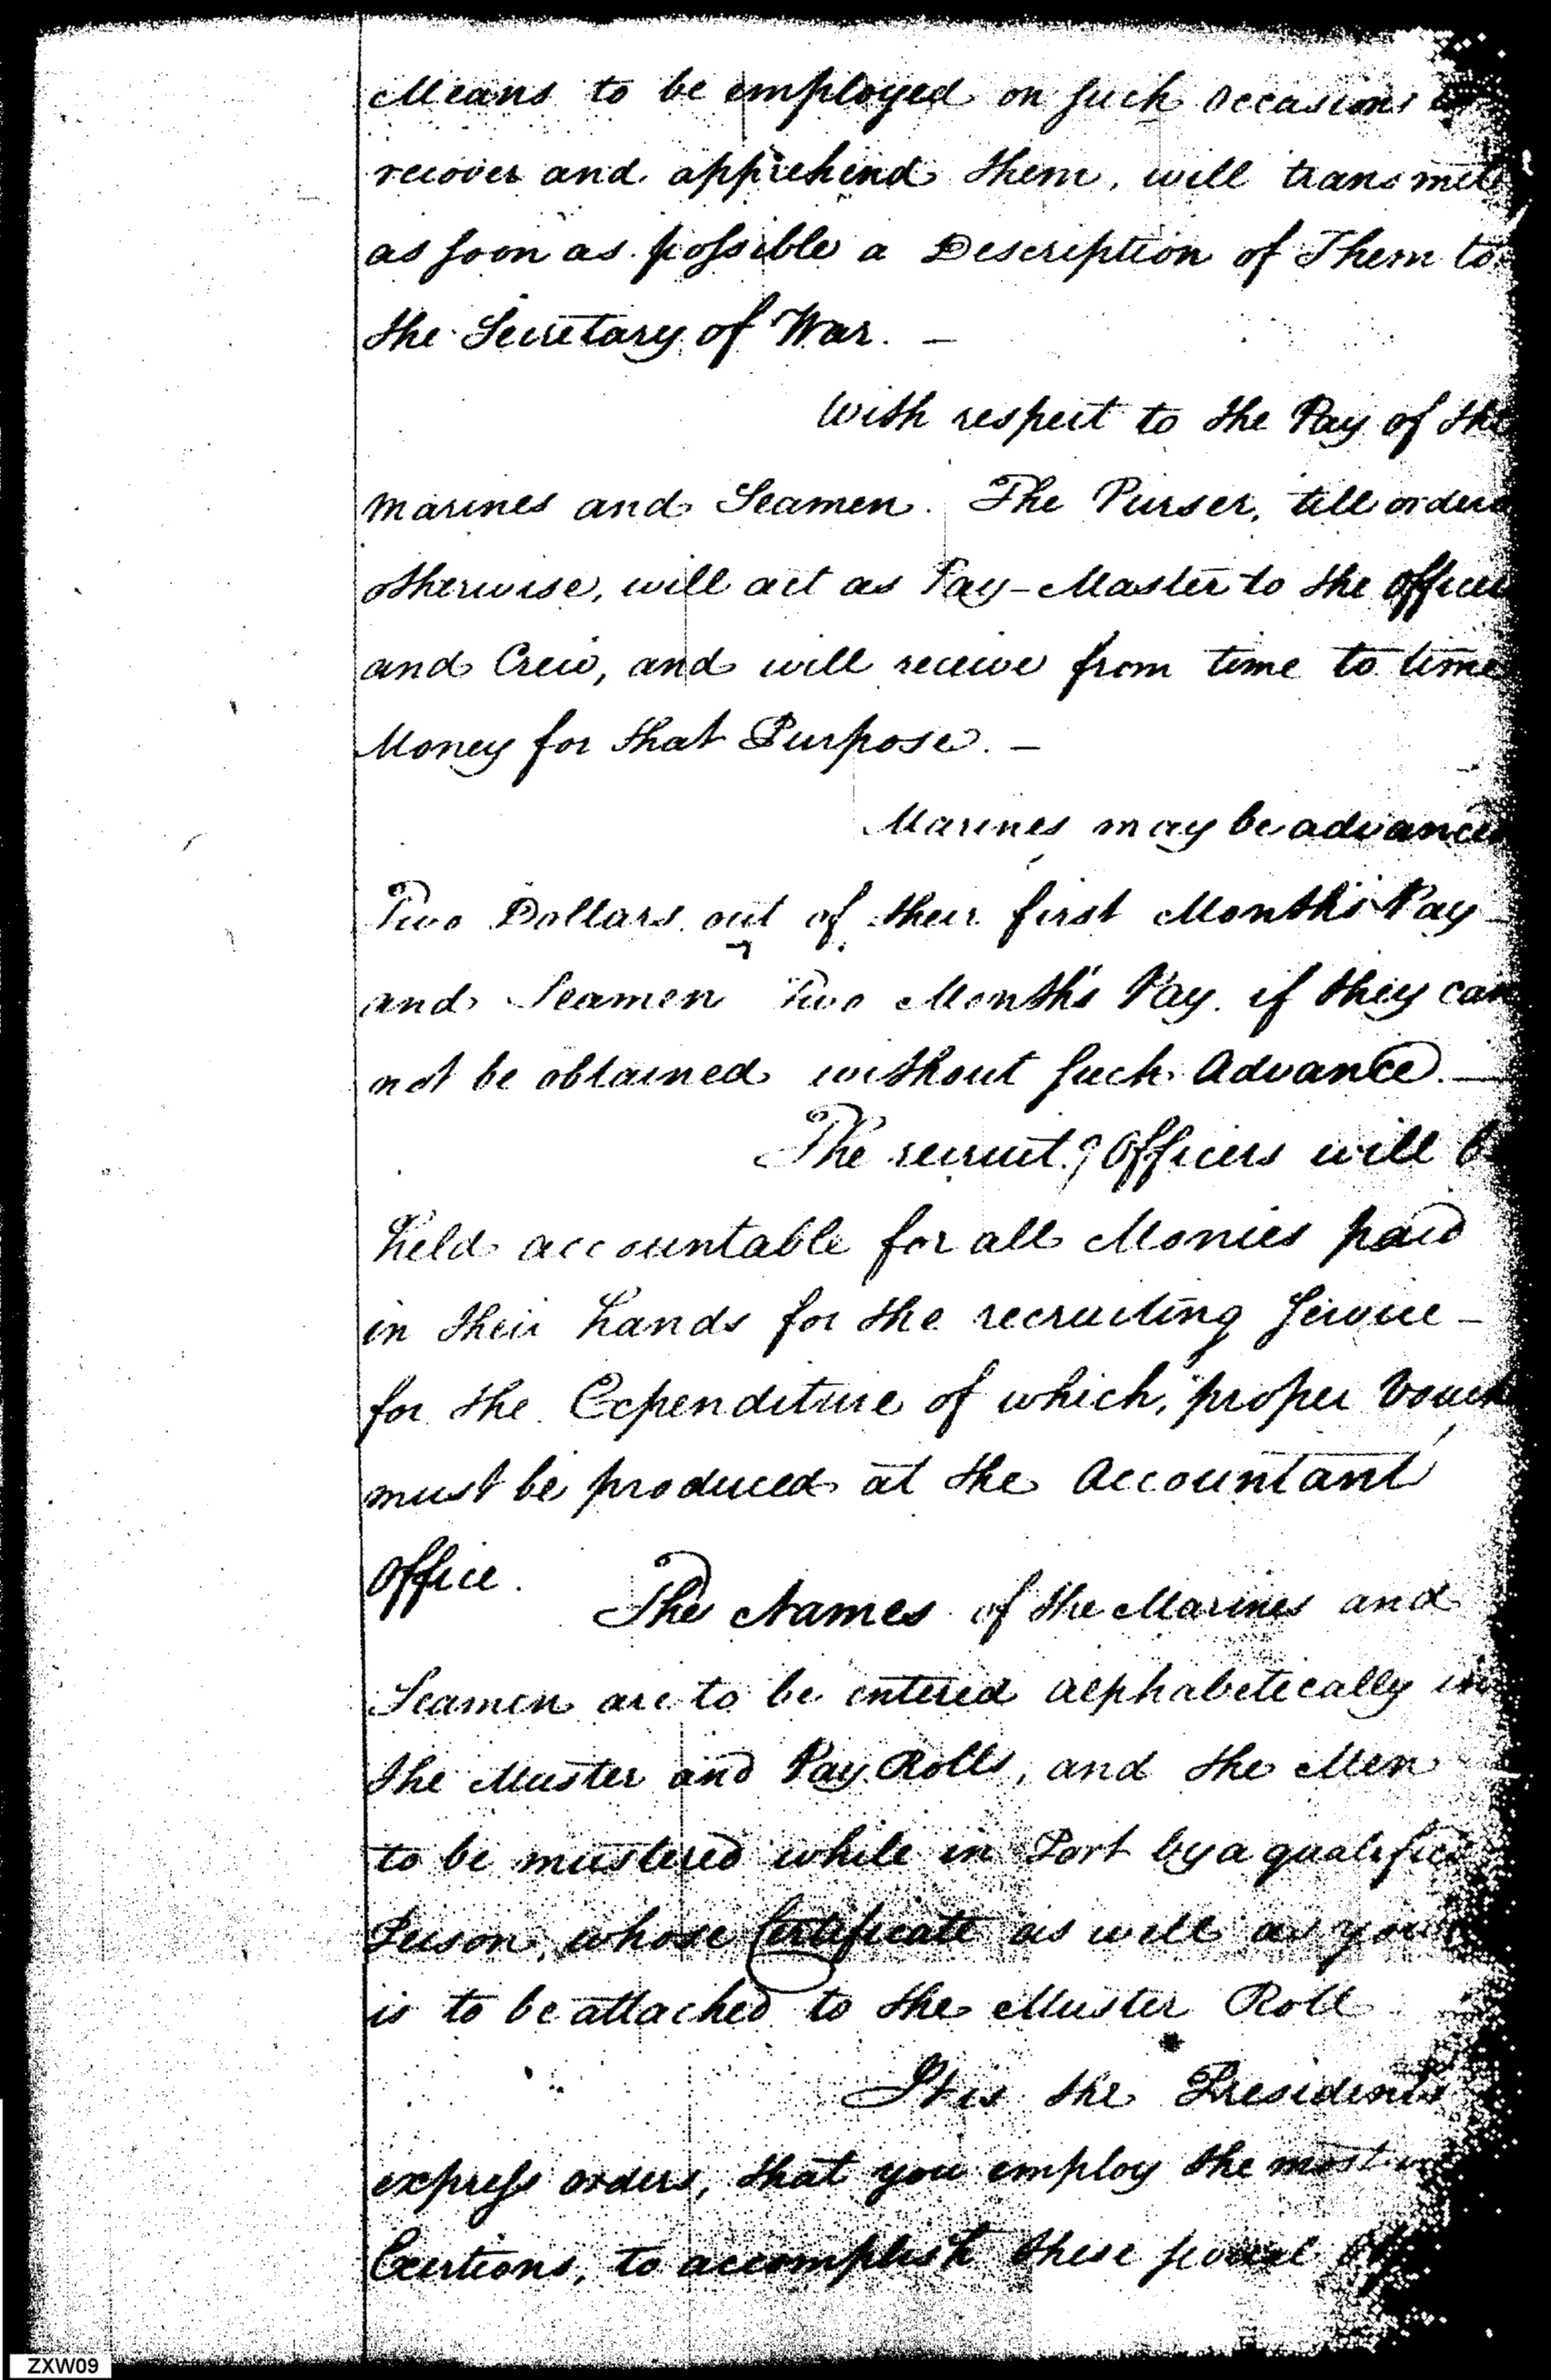 Means to be employed on such occasions to
recover and apprehend them, will transmit
as soon as possible a Description of Them to
the Secretary of War. —
With respect to the Pay of the
Marines and Seamen. The Purser, till orders
otherwise, will act as Pay-Master to the officers
and Crew, and will receive from time to time
Money for that Purpose. —
Marines may be advanced
Two Dollars out of their first Month's Pay —
and Seamen Two Month's Pay. if they can
not be obtained without such Advance. —
The recruit.g Officers will be
held accountable for all Monies paid
in their hands for the recruiting Service —
for the Expenditure of which, proper Vouch
must be produced at the Accountant
office.
The Names of the Marines and
Seamen are to be entered alphabetically in
the Muster and Pay Rolls, and the Men
to be mustered while in Port by a qualified
Person, whose Certificate as well as your
is to be attached to the Muster Roll
It is the Presidents
express orders, that you employ the most
Exertions, to accomplish these several
ZXW09